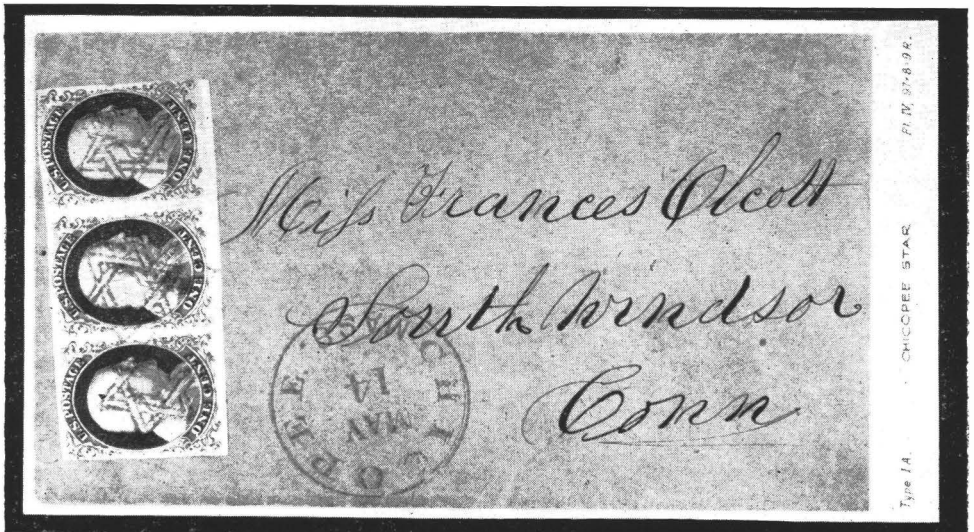 U.S. POSTAGE
ONE CENT
U.S. POSTAGE
ONE CENT
U.S. POSTAGE
ONE CENT
Miſs Frances Olcott
South Windsor
Conn
CHICOPEE
MAS.
MAY
14
Type IA. CHICOPEE STAR Pl. IV, 97-8-9R.